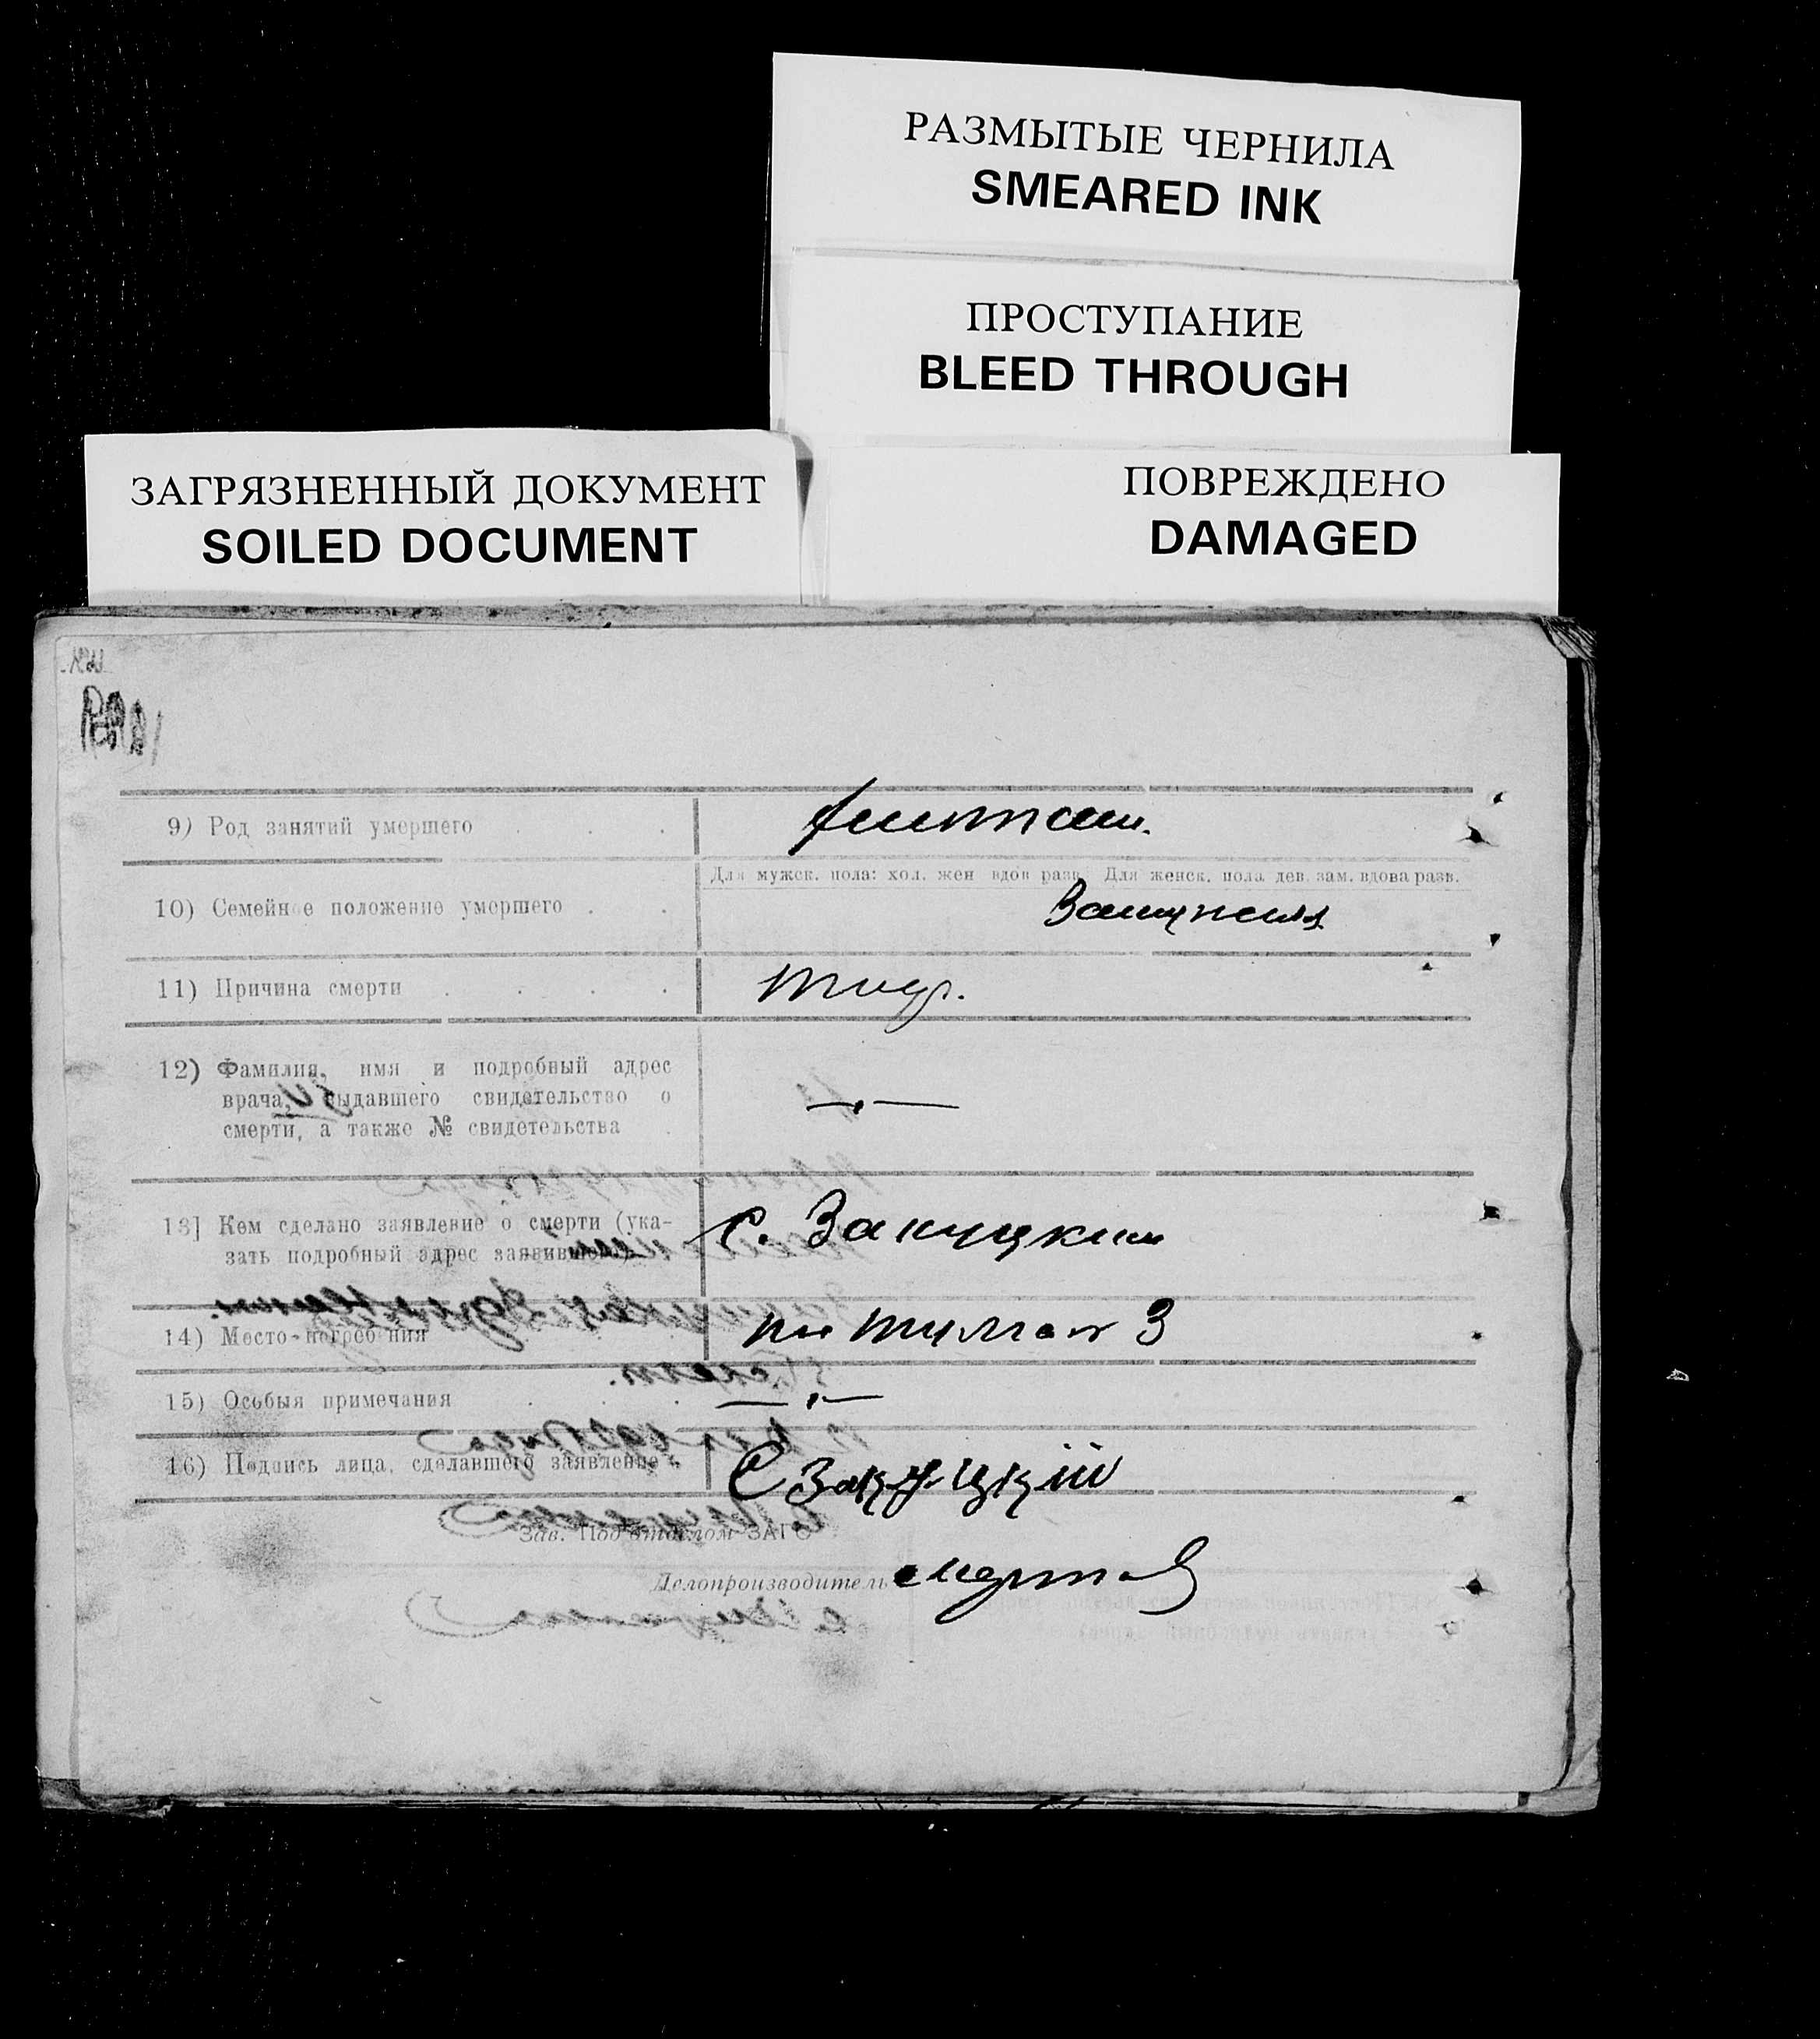 РАЗМЫТЫЕ ЧЕРНИЛА
SMEARED INK
ПРОСТУПАНИЕ
BLEED THROUGH
ЗАГРЯЗНЕННЫЙ ДОКУМЕНТ
SOILED DOCUMENT
ПОВРЕЖДЕНО
DAMAGED
9) Род занятий умершего
Для мужск. пола: хол. жен вдов разв. Для женск. пола дев. зам. вдова разв.
10) Семейное положение умершего . . Замужняя
11) Причина смерти . . . . тиф.
12) Фамилия, имя и подробный адрес
врача, выдавшего свидетельство о
смерти, а также № свидетельства .
13] Кем сделано заявление о смерти (ука-
зать подробный адрес заявившего)
С. Закуцким
14) Место погребения 3
15) Особыя примечания
16) Подпись лица, сделавшего заявление С Закуцкій
Зав. Подотделом ЗАГС
Делопроизводитель